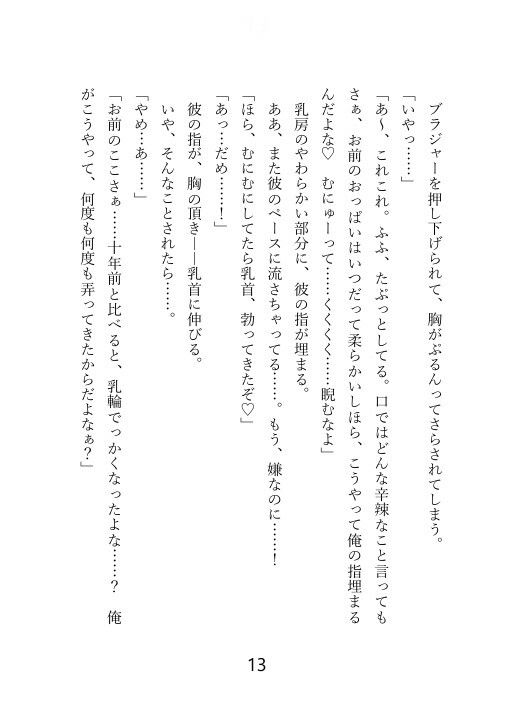 ブラジャーを押し下げられて、胸がぶるんってさらされてしまう。
「いやっ……」
「あ〜、これこれ。ふふ、たぷっとしてる。口ではどんな辛辣なこと言っても
さぁ、お前のおっぱいはいつだって柔らかいしほら、こうやって俺の指埋まる
んだよな♡　むにゅーって……くくくく……睨むなよ」
乳房のやわらかい部分に、彼の指が埋まる。
ああ、また彼のペースに流さちゃってる……。もう、嫌なのに……！
「ほら、むにむにしてたら乳首、勃ってきたぞ♡」
「あっ…だめ……！」
彼の指が、胸の頂き——乳首に伸びる。
いや、そんなことされたら……。
「やめ…あ……」
「お前のここさぁ……十年前と比べると、乳輪でっかくなったよな……？　俺
がこうやって、何度も何度も弄ってきたからだよなぁ？」
13